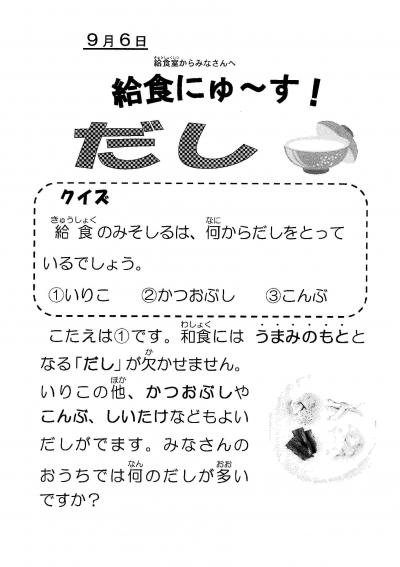 9月6日
給食室からみなさんへ
給食にゅ～す！
だし
クイズ
給食のみそしるは、何からだしをとって
いるでしょう。
①いりこ ②かつおぶし ③こんぶ
こたえは①です。和食には うまみのもとと
なる「だし」が欠かせません。
いりこの他、かつおぶしや
こんぶ、しいたけなどもよい
だしがでます。みなさんの
おうちでは何のだしが多い
ですか？